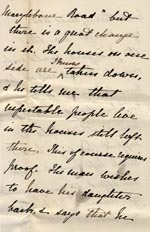 Marylebone Road" but
there is a great change
in it. The houses on one
side are I know taken down,
& he tells me that
respectable people live
in the houses still left
there. This of course requires
proof. The man wishes
to have his daughter
back & says that he